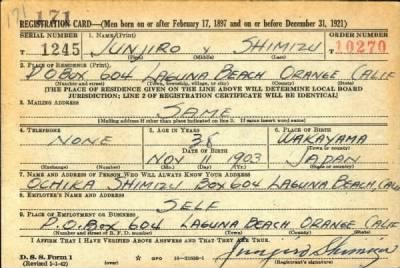 171
REGISTRATION CARD—(Men born on or after February 17, 1897 and on or before December 31, 1921)
SERIAL NUMBER 1. NAME (Print) ORDER NUMBER
T 1245 JUNJIRO Y SHIMIZU T 10270
2. PLACE OF RESIDENCE (Print)
P O BOX 604 LAGUNA BEACH ORANGE CALIF
(Number and street) (Town, township, village, or city) (County) (State)
[THE PLACE OF RESIDENCE GIVEN ON THE LINE ABOVE WILL DETERMINE LOCAL BOARD
JURISDICTION; LINE 2 OF REGISTRATION CERTIFICATE WILL BE IDENTICAL]
3. MAILING ADDRESS
SAME
[Mailing address if other than place indicated on line 2. If same insert word same]
4. TELEPHONE 5. AGE IN YEARS 6. PLACE OF BIRTH
NONE 38 WAKAYAMA
DATE OF BIRTH (Town or county)
NOV 11 1903 JAPAN
(Exchange) (Number) (Mo.) (Day) (Yr.) (State or country)
7. NAME AND ADDRESS OF PERSON WHO WILL ALWAYS KNOW YOUR ADDRESS
SHIMIZU BOX 604 LAGUNA BEACH, CALIF
8. EMPLOYER'S NAME AND ADDRESS
SELF
9. PLACE OF EMPLOYMENT OR BUSINESS
P.O. BOX 604 LAGUNA BEACH ORANGE CALIF
(Number and street or R. F. D. number) (Town) (County) (State)
I AFFIRM THAT I HAVE VERIFIED ABOVE ANSWERS AND THAT THEY ARE TRUE.
D. S. S. Form 1 GPO Junjiro Shimizu
(Revised 1-1-42) (over) (Registrant's signature)